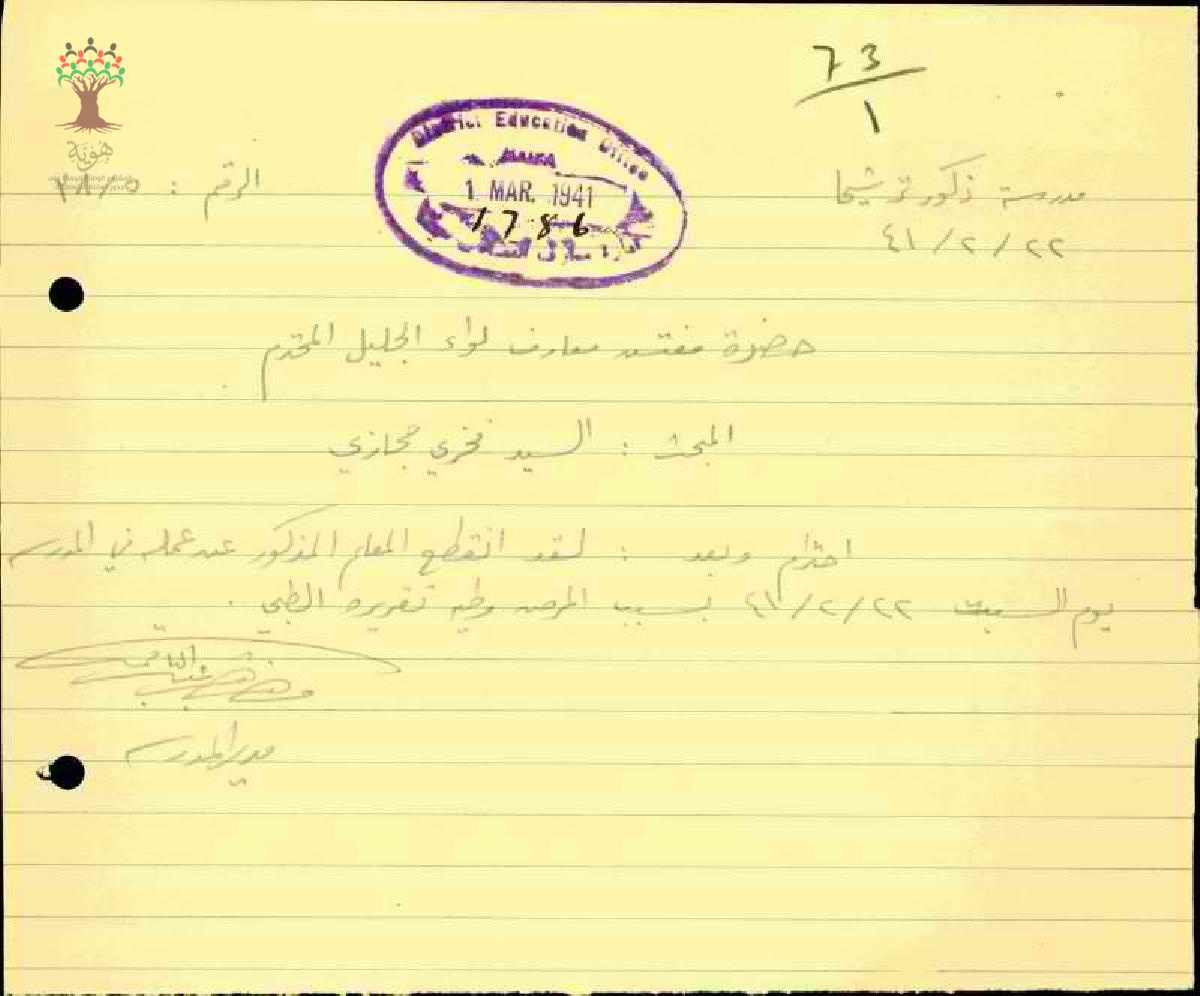 73
1
هوية
District Education Office
HAIFA
1 MAR. 1941
1786
مدرسة ذكور ترشيحا
الرقم :
٤١/٢/٢٢
حضرة مفتش معارف لواء الجليل المحترم
المبحث : السيد فخري حجازي
احترام وبعد : لقد انقطع المعلم المذكور عن عمله في المدرسة
يوم السبت ٤١/٢/٢٢ بسبب المرض وطيه تقريره الطبي .
مدير المدرسة